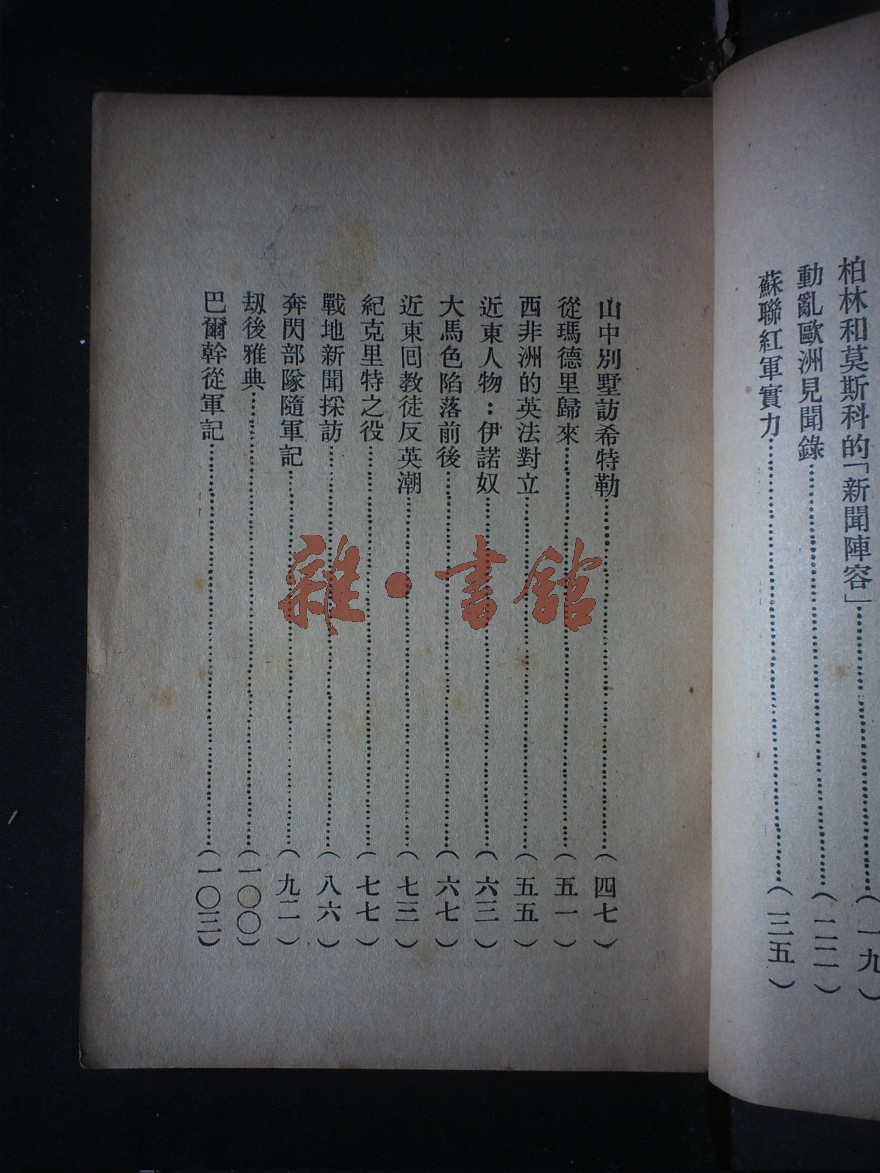 柏林和莫斯科的「新聞陣容」……………(一九)
動亂歐洲見聞錄……………(二二)
蘇聯紅軍實力……………(三五)
山中別墅訪希特勒……………(四七)
從瑪德里歸來……………(五一)
西非洲的英法對立……………(五五)
近東人物：伊諾奴……………(六三)
大馬色陷落前後……………(六七)
近東囘教徒反英潮……………(七三)
紀克里特之役……………(七七)
戰地新聞採訪……………(八六)
奔閃部隊隨軍記……………(九二)
刼後雅典……………(一〇〇)
巴爾幹從軍記……………(一〇三)
雜·書館